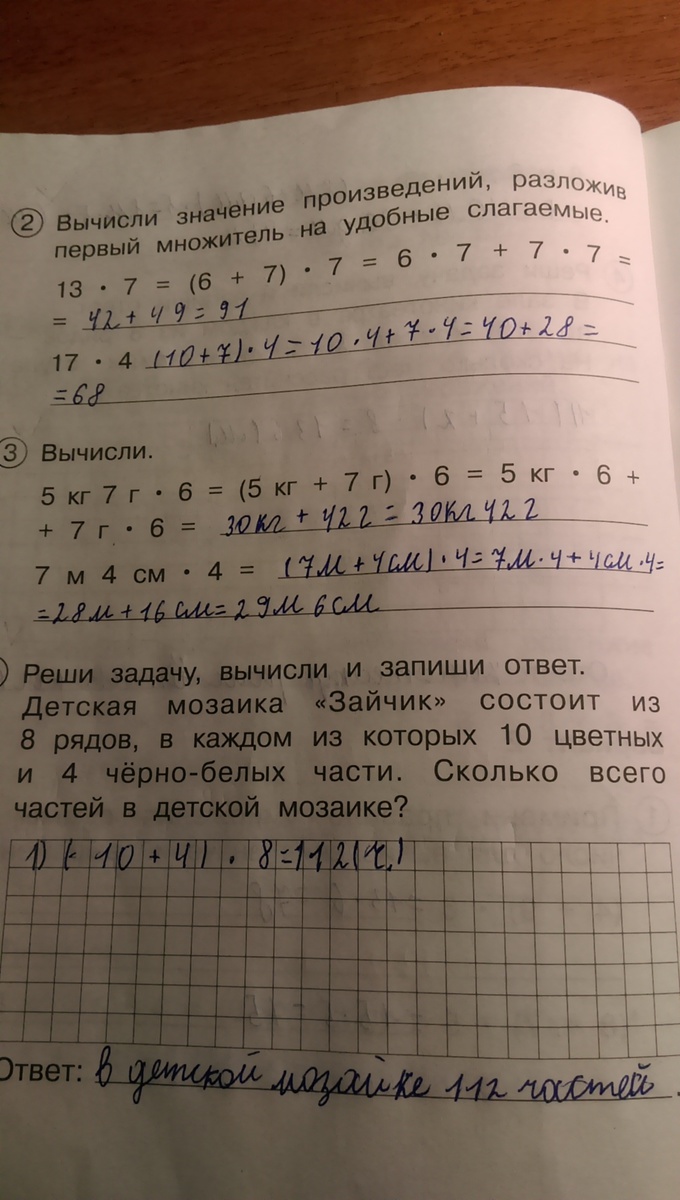 2 Вычисли значение произведений, разложив
первый множитель на удобные слагаемые.
13 · 7 = (6 + 7) · 7 = 6 · 7 + 7 · 7 =
= 42 + 49 = 91
17 · 4 (10+7) · 4 = 10 · 4 + 7 · 4 = 40 + 28 =
= 68
3 Вычисли.
5 кг 7 г · 6 = (5 кг + 7 г) · 6 = 5 кг · 6 +
+ 7 г · 6 = 30кг + 42г = 30кг 42г
7 м 4 см · 4 = (7м + 4см) · 4 = 7м · 4 + 4см · 4 =
= 28м + 16см = 29м 6см
Реши задачу, вычисли и запиши ответ.
Детская мозаика «Зайчик» состоит из
8 рядов, в каждом из которых 10 цветных
и 4 чёрно-белых части. Сколько всего
частей в детской мозаике?
1) (10 + 4) · 8 = 112 (ч.)
Ответ: в детской мозайке 112 частей.